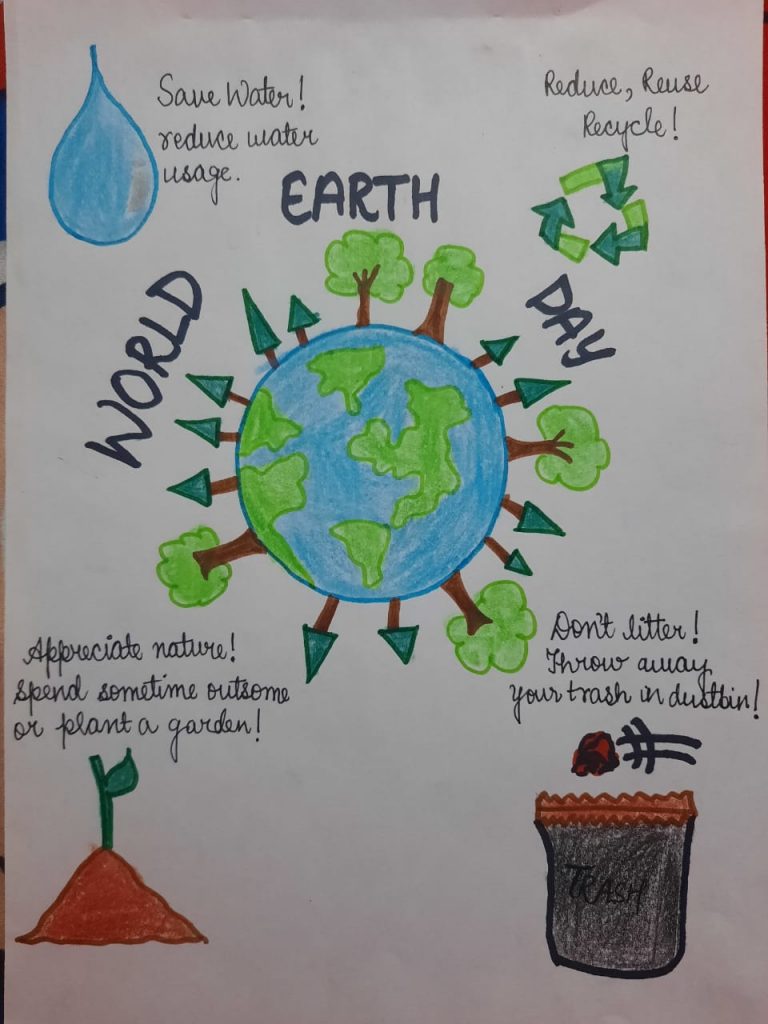 Save Water!
reduce water
usage.
Reduce, Reuse
Recycle!
WORLD
EARTH
DAY
Appreciate nature!
Spend sometime outsome
or plant a garden!
Don't litter!
Throw away
your trash in dustbin!
TRASH